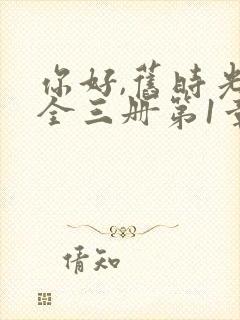 你好,旧時光
全三册第1章
倩知